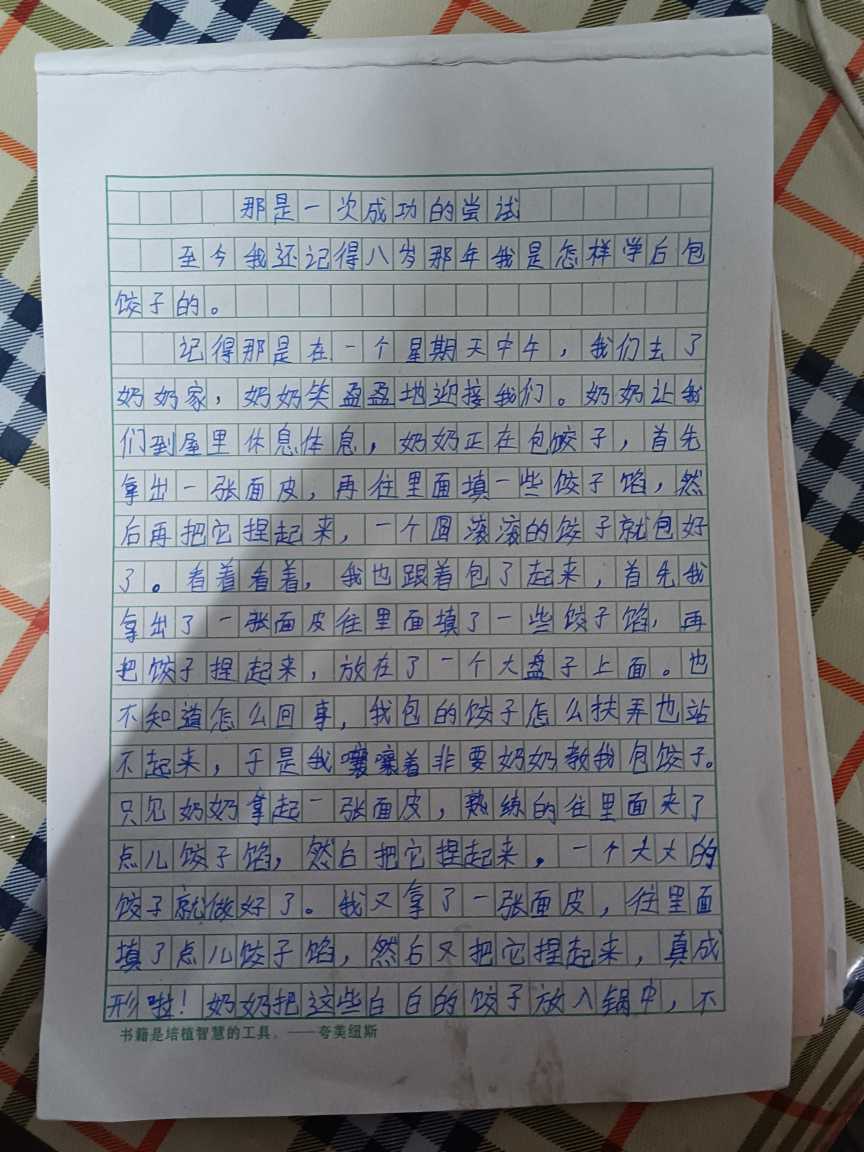 那是一次成功的尝试
至今我还记得八岁那年我是怎样学后包
饺子的。
记得那是在一个星期天中午，我们去了
奶奶家，奶奶笑盈盈地迎接我们。奶奶让我
们到屋里休息体息，奶奶正在包饺子，首先
拿出一张面皮，再往里面填一些饺子馅，然
后再把它捏起来，一个圆滚滚的饺子就包好
了。看着看着，我也跟着包了起来，首先我
拿出了一张面皮往里面填了一些饺子馅，再
把饺子捏起来，放在了一个大盘子上面。也
不知道怎么回事，我包的饺子怎么扶弄也站
不起来，于是我嚷嚷着非要奶奶教我包饺子。
只见奶奶拿起一张面皮，熟练的往里面夹了
点儿饺子馅，然后把它捏起来，一个大大的
饺子就做好了。我又拿了一张面皮，往里面
填了点儿饺子馅，然后又把它捏起来，真成
形啦！奶奶把这些白白的饺子放入锅中，不
书籍是培植智慧的工具。——夸美纽斯